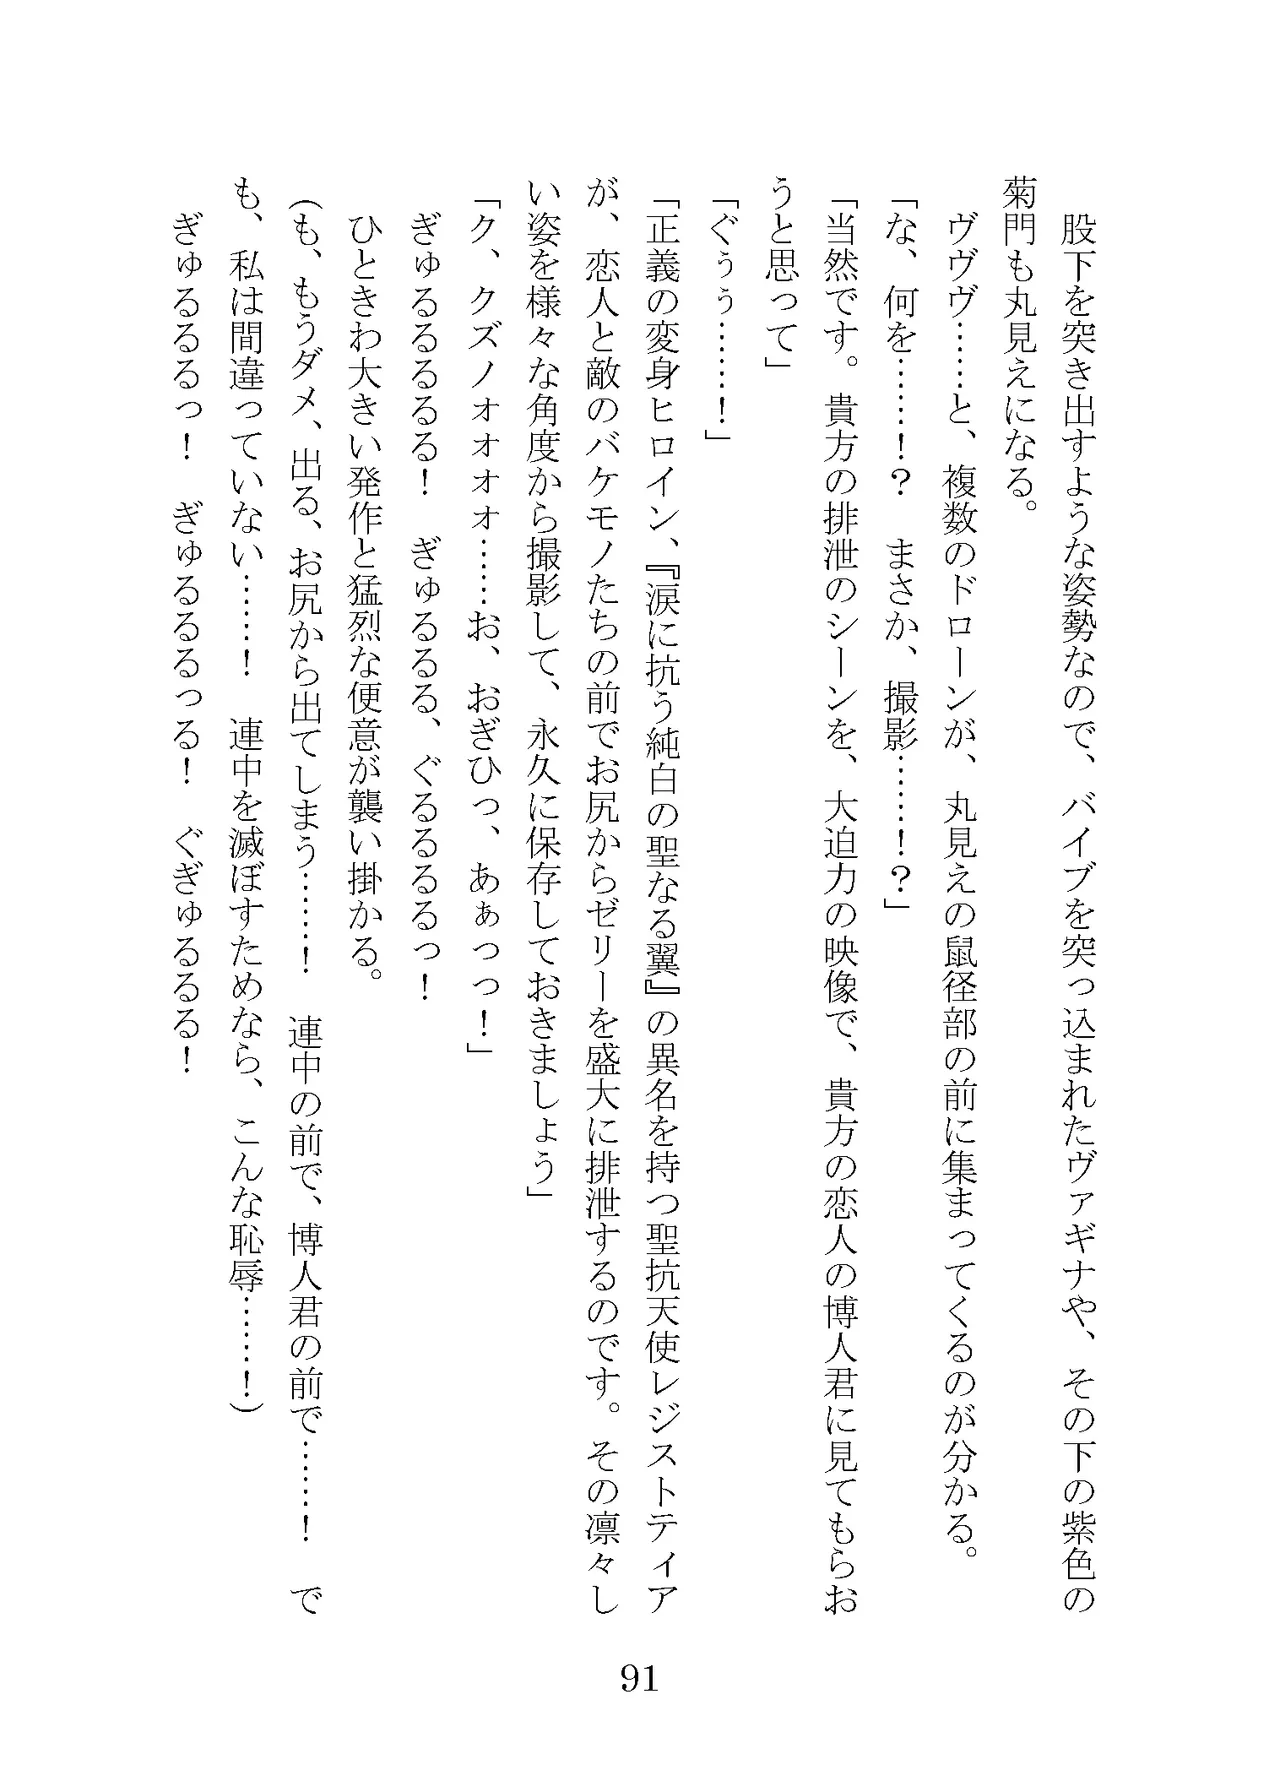 股下を突き出すような姿勢なので、バイブを突っ込まれたヴァギナや、その下の紫色の
菊門も丸見えになる。
　ヴヴヴ……と、複数のドローンが、丸見えの鼠径部の前に集まってくるのが分かる。
「な、何を……！？　まさか、撮影……！？」
「当然です。貴方の排泄のシーンを、大迫力の映像で、貴方の恋人の博人君に見てもらお
うと思って」
「ぐぅぅ……！」
「正義の変身ヒロイン、『涙に抗う純白の聖なる翼』の異名を持つ聖抗天使レジストティア
が、恋人と敵のバケモノたちの前でお尻からゼリーを盛大に排泄するのです。その凛々し
い姿を様々な角度から撮影して、永久に保存しておきましょう」
「ク、クズノォォォォ……お、おぎひっ、あぁっっ！」
　ぎゅるるるるる！　ぎゅるるる、ぐるるるるっ！
　ひときわ大きい発作と猛烈な便意が襲い掛かる。
（も、もうダメ、出る、お尻から出てしまう……！　連中の前で、博人君の前で……！　で
も、私は間違っていない……！　連中を滅ぼすためなら、こんな恥辱……！）
　ぎゅるるるっ！　ぎゅるるるっる！　ぐぎゅるるる！
91